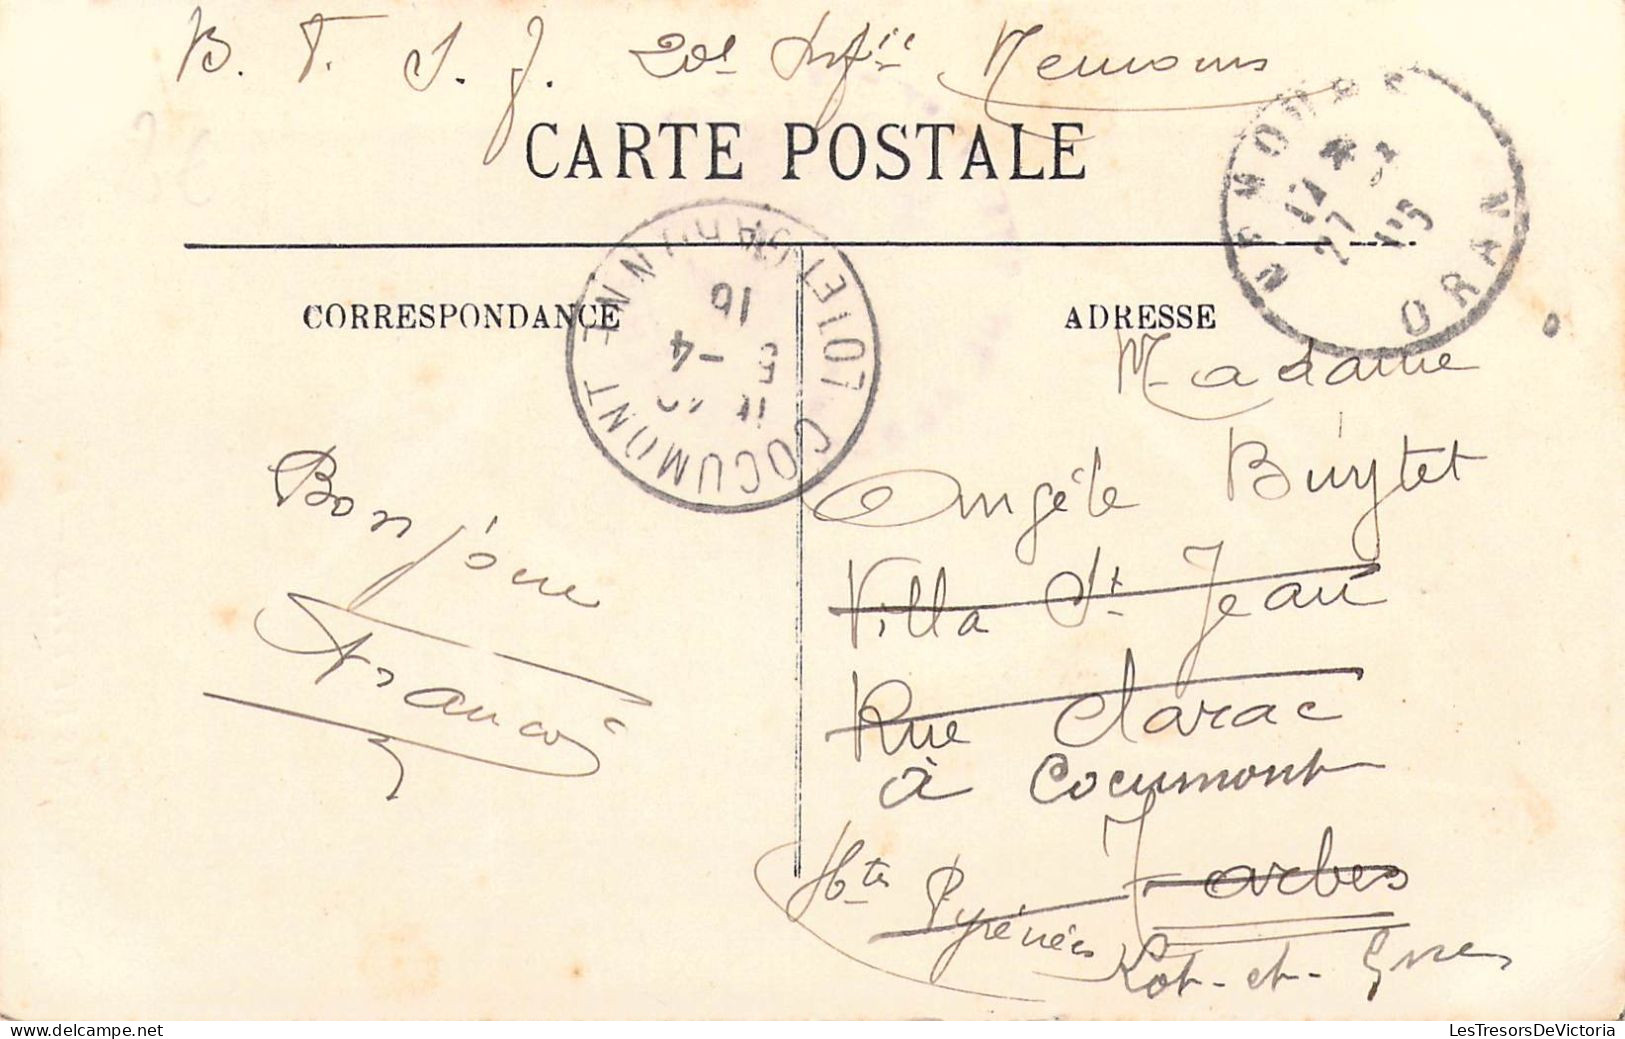 B. T. S. J. 20e Infie Nemours
CARTE POSTALE
NEMOURS
ORAN
COCUMONT LOT ET GARONNE
5 -4
16
CORRESPONDANCE
ADRESSE
Bonjour
François
Madame
Angèle Buytet
Villa St Jean
Rue Clarac
à Cocumont
Tarbes
Htes Pyrénées
Lot-et-Gne
LesTresorsDeVictoria.com